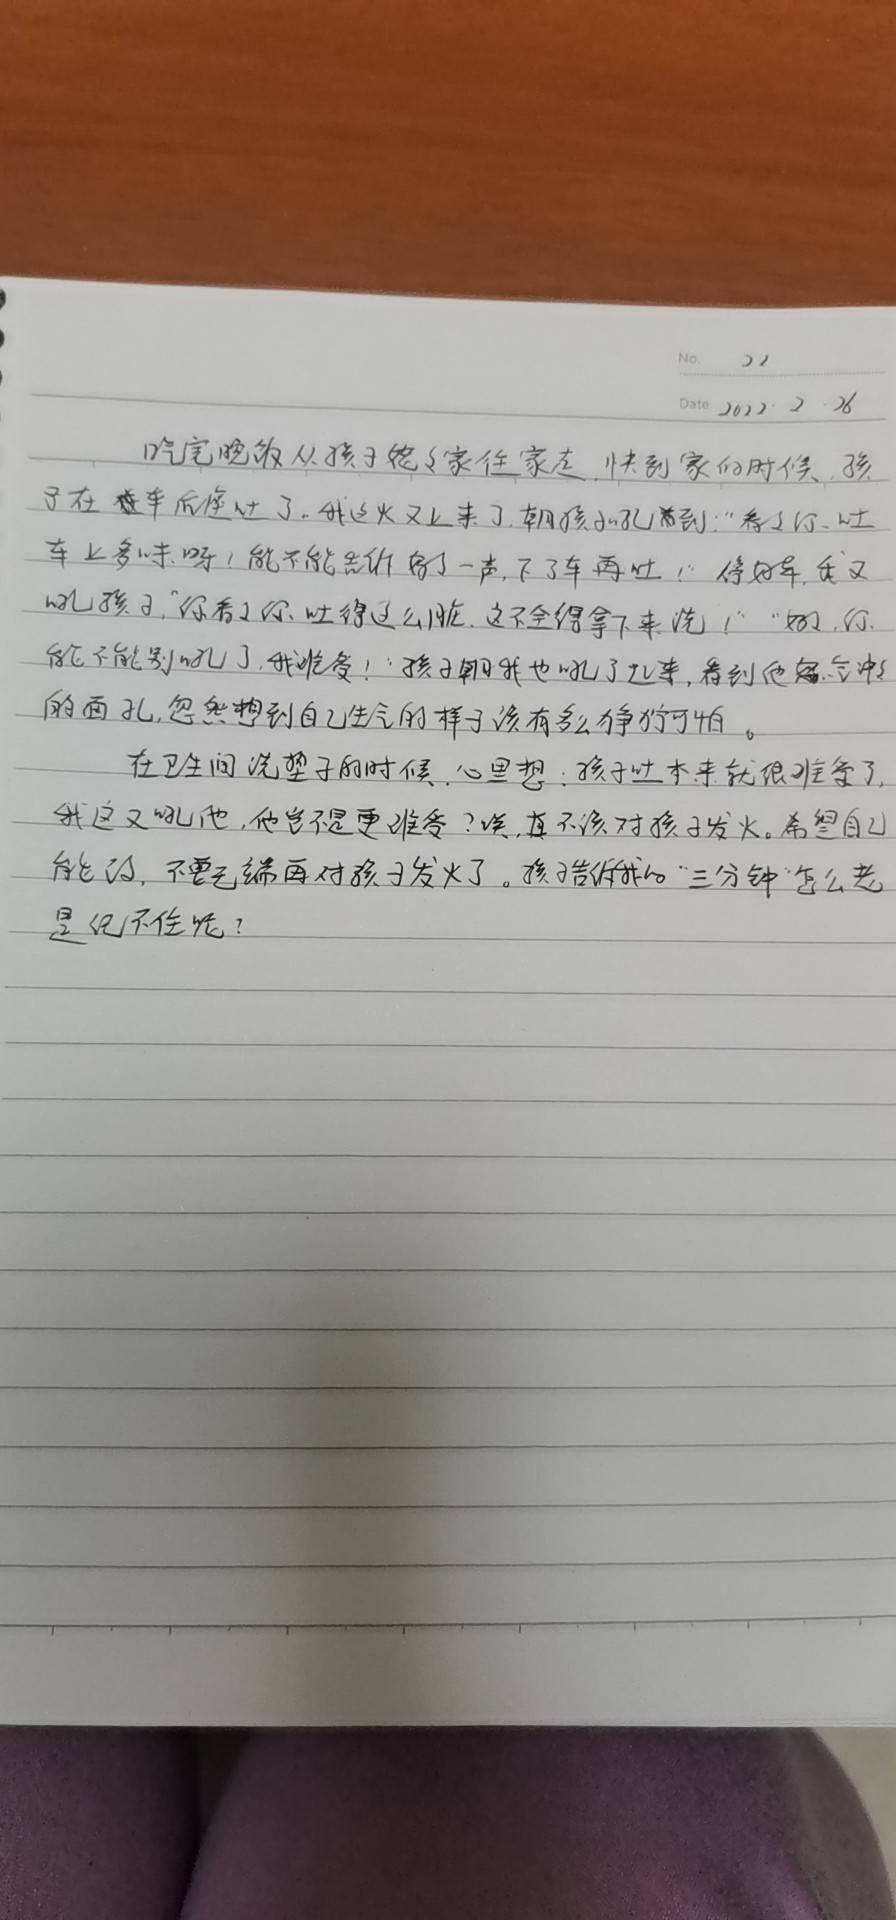 No. 21
Date 2022.2.26
吃完晚饭从孩子姥姥家往家走，快到家的时候，孩
子在车后座吐了。我这火又上来了，朝孩子吼到：“看看你，吐
车上多味呀！能不能告诉妈妈一声，下了车再吐！”停好车，我又
吼孩子，“你看看你，吐得这么脏，这不全得拿下来洗！”“妈妈，你
能不能别吼了，我难受！”孩子朝我也吼了起来，看到他气冲冲
的面孔，忽然想到自己生气的样子该有多么狰狞可怕。
在卫生间洗垫子的时候，心里想：孩子吐本来就很难受了，
我这又吼他，他岂不是更难受？唉，真不该对孩子发火。希望自己
能改，不要无端再对孩子发火了。孩子告诉我的“三分钟”怎么老
是记不住呢？